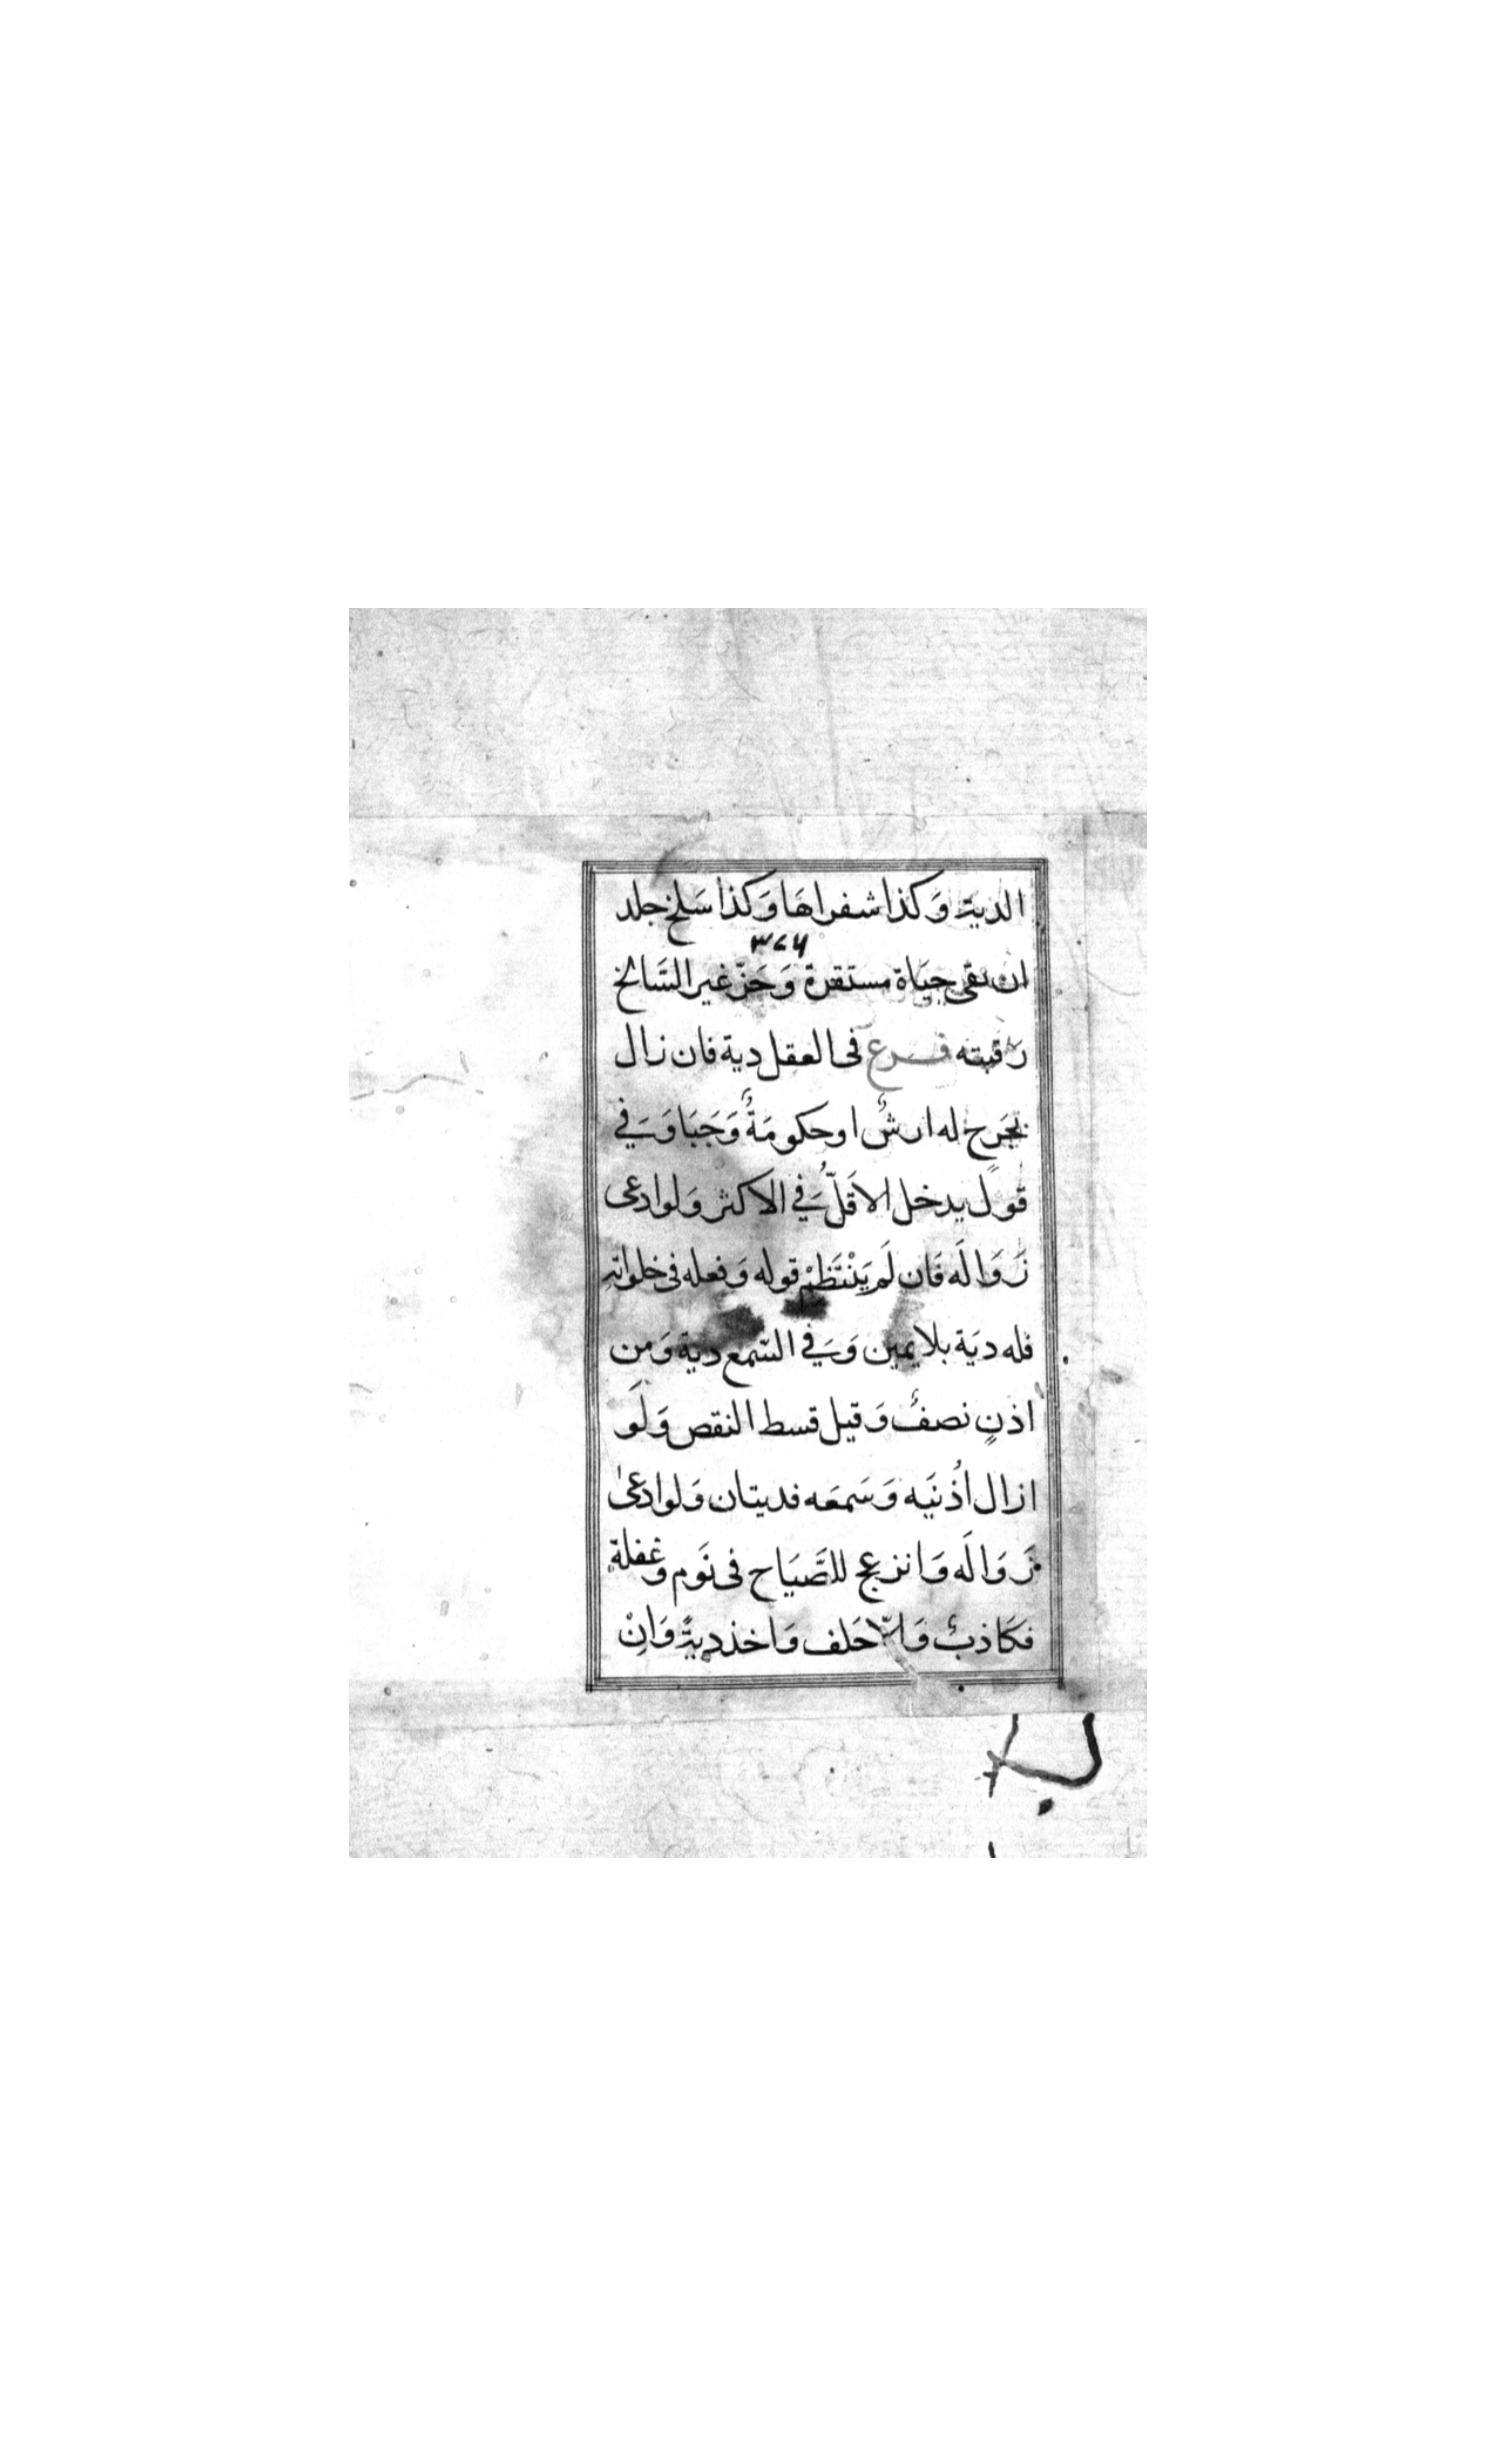 الدية وَكذا شفراهَا وَكذا سَلخ جلد
٣٧٦
ان بقى حيَاة مستقرة وَحَزّ غير السَّالخ
رَقبته فرع فى العقل دية فان زال
بجَرحٍ له ارشٌ او حكومَةٌ وَجَبَا وَفي
قول يدخل الاقَلُّ في الاكثر وَلو ادعى
زَوَالَه فَان لَم يَنْتَظِمْ قوله وَفعله فى خلواته
فله ديَة بلا يمين وَفي السّمع دية وَمن
اذنٍ نصفٌ وَقيل قسط النقص وَلَو
ازال اُذنَيه وَسَمعَه فديتان وَلو ادعىٰ
زَوَالَه وَانزعج للصِّيَاح فى نَوم وغفلةٍ
فكَاذبٌ وَالاّ حَلف وَاخذ ديةً وَانْ